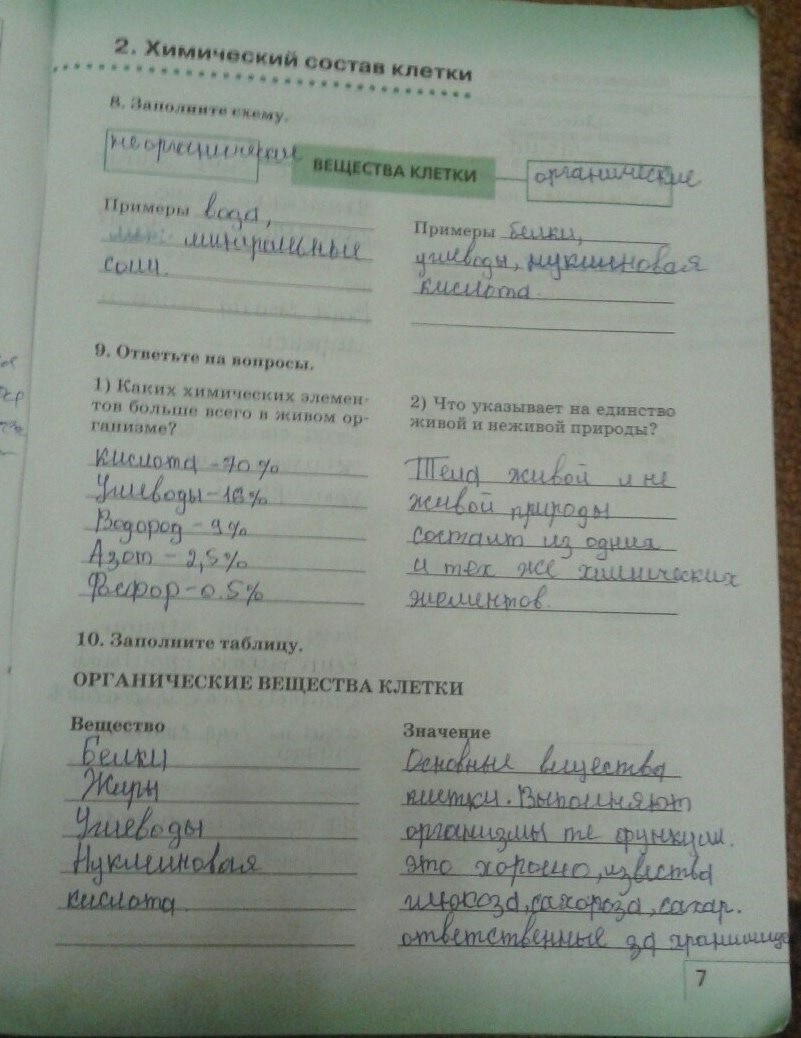 2. Химический состав клетки
8. Заполните схему.
неорганические
ВЕЩЕСТВА КЛЕТКИ
органические
Примеры вода,
минеральные
соли.
Примеры белки,
углеводы, нуклеиновая
кислота.
9. Ответьте на вопросы.
1) Каких химических элемен-
тов больше всего в живом ор-
ганизме?
кислота - 70%
Углеводы - 18%
Водород - 9%
Азот - 2,5%
Фосфор - 0.5%
2) Что указывает на единство
живой и неживой природы?
Тела живой и не
живой природы
состоят из одних
и тех же химических
элементов.
10. Заполните таблицу.
ОРГАНИЧЕСКИЕ ВЕЩЕСТВА КЛЕТКИ
Вещество
Белки
Жиры
Углеводы
Нуклеиновая
кислота
Значение
Основные вещества
клетки. Выполняют
организмы те функции.
это хорошо, извества
глюкоза, сахороза, сахар.
ответственные за
7